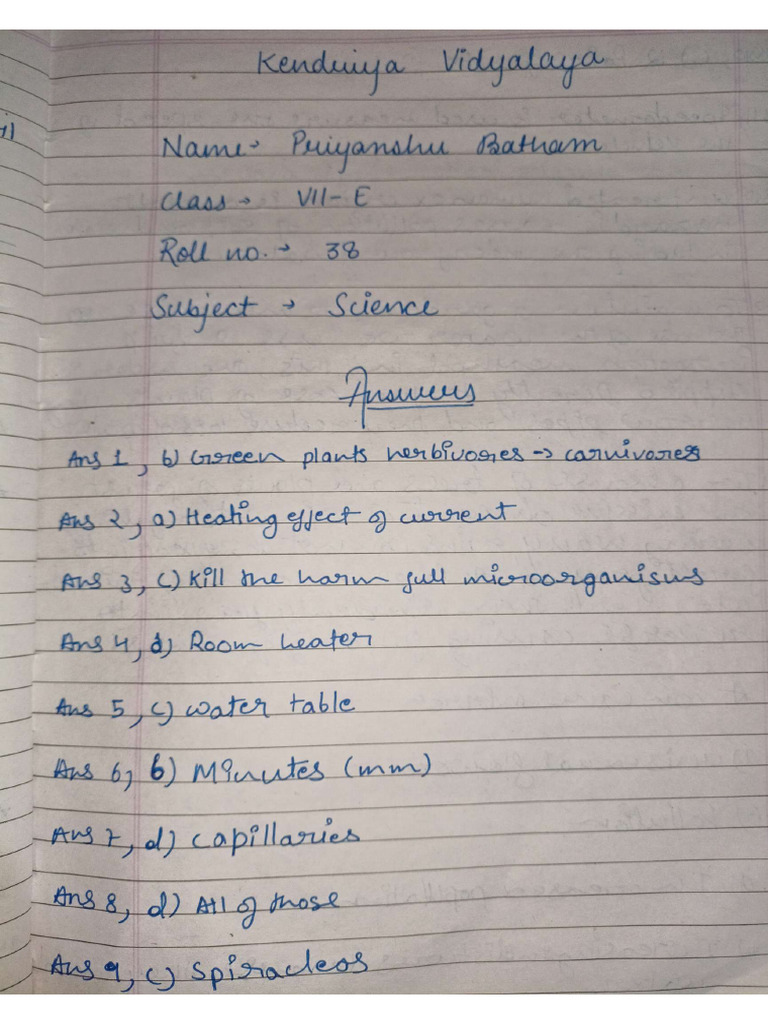 Kendriya Vidyalaya
Name → Priyanshu Batham
Class → VII-E
Roll no. → 38
Subject → Science
Answers
Ans 1, b) Green plants herbivores → carnivores
Ans 2, a) Heating effect of current
Ans 3, c) Kill the harm full microorganisms
Ans 4, d) Room heater
Ans 5, c) water table
Ans 6, b) Minutes (mm)
Ans 7, d) Capillaries
Ans 8, d) All of those
Ans 9, c) Spiracleos